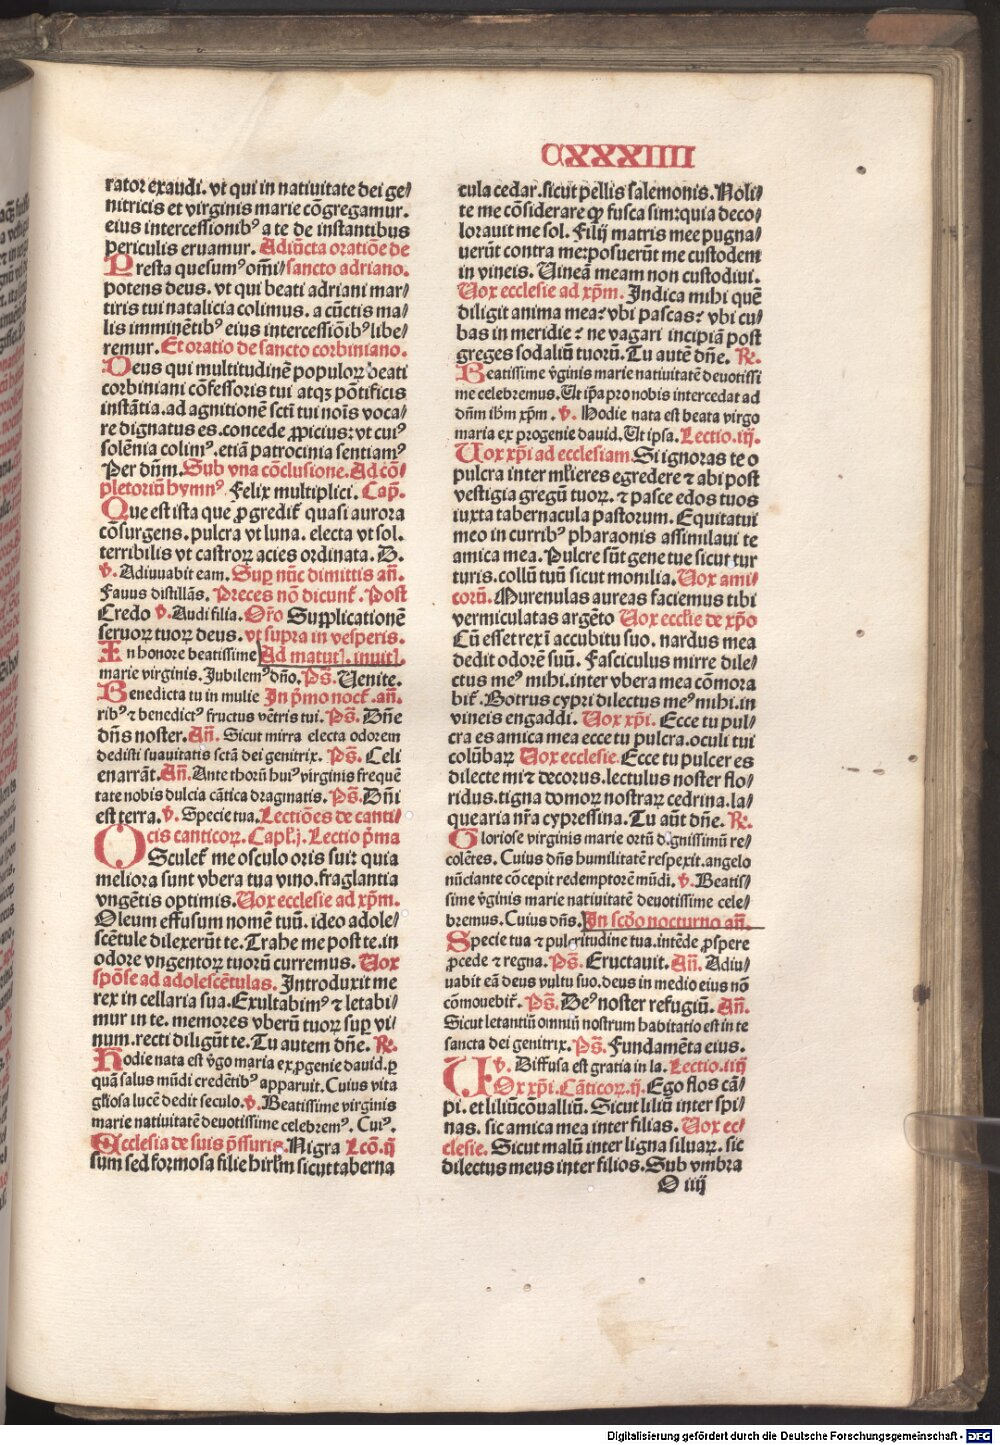 CXXXIIII
rator exaudi. vt qui in natiuitate dei ge⸗
nitricis et virginis marie cōgregamur.
eius intercessionibꝰ a te de instantibus
periculis eruamur. Adiūcta oratiōe de
Presta quesumꝰ om̄i⸗ sancto adriano.
potens deus. vt qui beati adriani mar⸗
tiris tui natalicia colimus. a cūctis ma⸗
lis imminētibꝰ eius intercessiōibꝰ libe⸗
remur. Et oratio de sancto corbiniano.
Deus qui multitudinē populoꝝ beati
corbiniani cōfessoris tui atqꝫ pōtificis
instātia. ad agnitionē sctī tui noīs voca⸗
re dignatus es. concede ꝓpicius: vt cuiꝰ
solēnia colimꝰ. etiā patrocinia sentiamꝰ
Per dn̄m. Sub vna cōclusione. Ad cō⸗
pletoriū hymnꝰ. Felix multiplici. Cap̄.
Que est ista que ꝓgredit᷑ quasi aurora
cōsurgens. pulcra vt luna. electa vt sol.
terribilis vt castroꝝ acies ordinata. D.
v. Adiuuabit eam. Suꝑ nūc dimittis an̄.
Fauus distillās. Preces nō dicunt᷑. Post
Credo v. Audi filia. Or̄o Supplicationē
seruoꝝ tuoꝝ deus. vt supra in vesperis.
In honore beatissime Ad matutꝭ. inuitꝭ.
marie virginis. Jubilemꝰ dn̄o. Ps̄. Uenite.
Benedicta tu in mulie In p̄mo noct᷑. an̄.
ribꝰ ⁊ benedictꝰ fructus vētris tui. Ps̄. Dn̄e
dn̄s noster. An̄. Sicut mirra electa odorem
dedisti suauitatis sctā dei genitrix. Ps̄. Celi
enarrāt. An̄. Ante thorū huiꝰ virginis frequē
tate nobis dulcia cātica dragmatis. Ps̄. Dn̄i
est terra. v. Specie tua. Lectiōes de canti⸗
cis canticoꝝ. Capꝉ.j. Lectio p̄ma
OSculet᷑ me osculo oris sui: quia
meliora sunt vbera tua vino. fraglantia
vngētis optimis. Uox ecclesie ad xp̄m.
Oleum effusum nomē tuū. ideo adole⸗
scētule dilexerūt te. Trahe me post te. in
odore vngentoꝝ tuorū curremus. Uox
spōse ad adolescētulas. Introduxit me
rex in cellaria sua. Exultabimꝰ ⁊ letabi⸗
mur in te. memores vberū tuoꝝ suꝑ vi⸗
num. recti diligūt te. Tu autem dn̄e. R.
Hodie nata est v̄go maria ex ꝓgenie dauid. ꝑ
quā salus mūdi credētibꝰ apparuit. Cuius vita
gꝉiosa lucē dedit seculo. v. Beatissime virginis
marie natiuitatē deuotissime celebremꝰ. Cuiꝰ.
Ecclesia de suis p̄ssuris. Nigra Lcō.ij
sum sed formosa filie hirlm̄ sicut taberna
cula cedar. sicut pellis salemonis. Noli⸗
te me cōsiderare ꝙ fusca sim: quia deco⸗
lorauit me sol. Filij matris mee pugna⸗
uerūt contra me: posuerūt me custodem
in vineis. Uineā meam non custodiui.
Uox ecclesie ad xp̄m. Indica mihi quē
diligit anima mea? vbi pascas? vbi cu⸗
bas in meridie? ne vagari incipiā post
greges sodaliū tuorū. Tu autē dn̄e. R.
Beatissime v̄ginis marie natiuitatē deuotissi
me celebremus. Ut ip̄a pro nobis intercedat ad
dn̄m ih̄m xp̄m. v. Hodie nata est beata virgo
maria ex progenie dauid. Ut ipsa. Lectio.iij.
Uox xp̄i ad ecclesiam. Si ignoras te o
pulcra inter ml̄ieres egredere ⁊ abi post
vestigia gregū tuoꝝ. ⁊ pasce edos tuos
iuxta tabernacula pastorum. Equitatui
meo in curribꝰ pharaonis assimilaui te
amica mea. Pulcre sūt gene tue sicut tur
turis. collū tuū sicut monilia. Uox ami⸗
corū. Murenulas aureas faciemus tibi
vermiculatas argēto Uox eccl̄ie de xp̄o
Cū esset rex ī accubitu suo. nardus mea
dedit odorē suū. Fasciculus mirre dile⸗
ctus meꝰ mihi. inter vbera mea cōmora
bit᷑. Botrus cypri dilectus meꝰ mihi. in
vineis engaddi. Uox xp̄i. Ecce tu pul⸗
cra es amica mea ecce tu pulcra. oculi tui
colūbaꝝ Uox ecclesie. Ecce tu pulcer es
dilecte mi ⁊ decorus. lectulus noster flo⸗
ridus. tigna domoꝝ nostraꝝ cedrina. la⸗
quearia nr̄a cypressina. Tu aūt dn̄e. R.
Gloriose virginis marie ortū dignissimū re⸗
colētes. Cuius dn̄s humilitatē respexit. angelo
nūciante cōcepit redemptorē mūdi. v. Beatis⸗
sime v̄ginis marie natiuitatē deuotissime cele⸗
bremus. Cuius dn̄s. In scd̄o nocturno an̄.
Specie tua ⁊ pulcritudine tua. intēde ꝓspere
ꝓcede ⁊ regna. Ps̄. Eructauit. An̄. Adiu⸗
uabit eā deus vultu suo. deus in medio eius nō
cōmouebit᷑. Ps̄. Deꝰ noster refugiū. An̄.
Sicut letantiū omniū nostrum habitatio est in te
sancta dei genitrix. Ps̄. Fundamēta eius.
v. Diffusa est gratia in la. Lectio.iiij
UOx xp̄i. Cāticoꝝ.ij. Ego flos cā⸗
pi. et liliū cōualliū. Sicut liliū inter spi⸗
nas. sic amica mea inter filias. Uox ec⸗
clesie. Sicut malū inter ligna siluaꝝ. sic
dilectus meus inter filios. Sub vmbra
O iiij
Digitalisierung gefördert durch die Deutsche Forschungsgemeinschaft - DFG